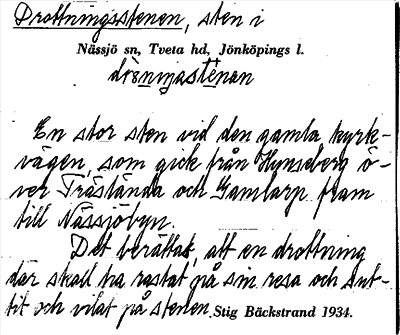 Drottningsstenen, sten i
Nässjö sn, Tveta hd, Jönköpings l.
En stor sten vid den gamla kyrk-
vägen, som gick från Hynseberg ö-
ver Trästända och Gamlarp fram
till Nässjöbyn.
Det berättas, att en drottning
där skall ha rastat på sin resa och sut-
tit och vilat på stenen.
Stig Bäckstrand 1934.